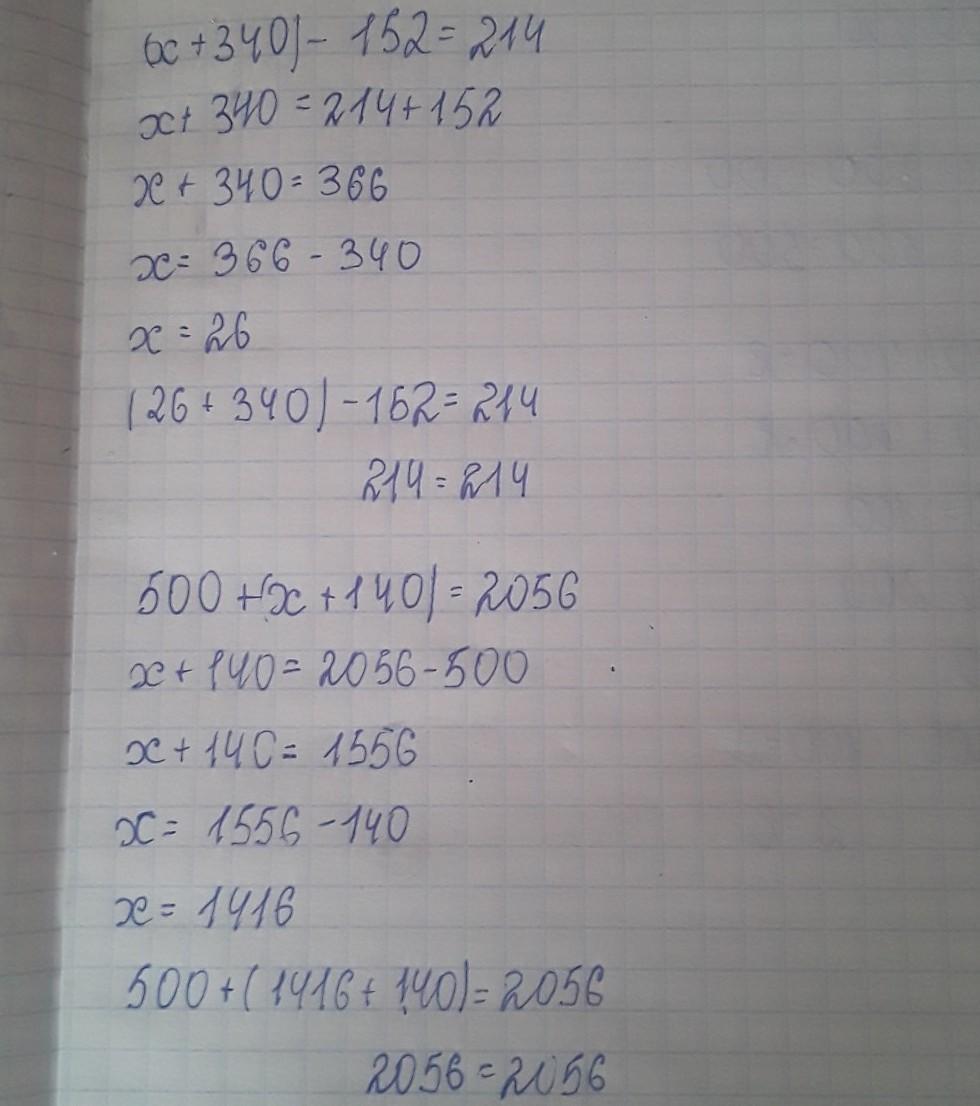 (x+340)-152=214
x+340=214+152
x+340=366
x=366-340
x=26
(26+340)-152=214
214=214
500+(x+140)=2056
x+140=2056-500
x+140=1556
x=1556-140
x=1416
500+(1416+140)=2056
2056=2056